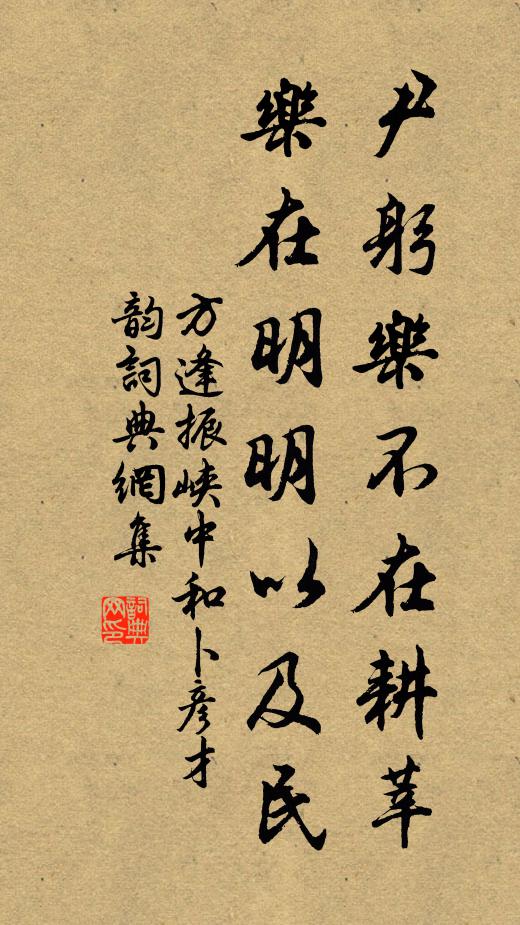 尹躬樂不在耕莘
樂在明明以及民
方逢振峽中和卜彥才
韵詞典網集
詞典
网印